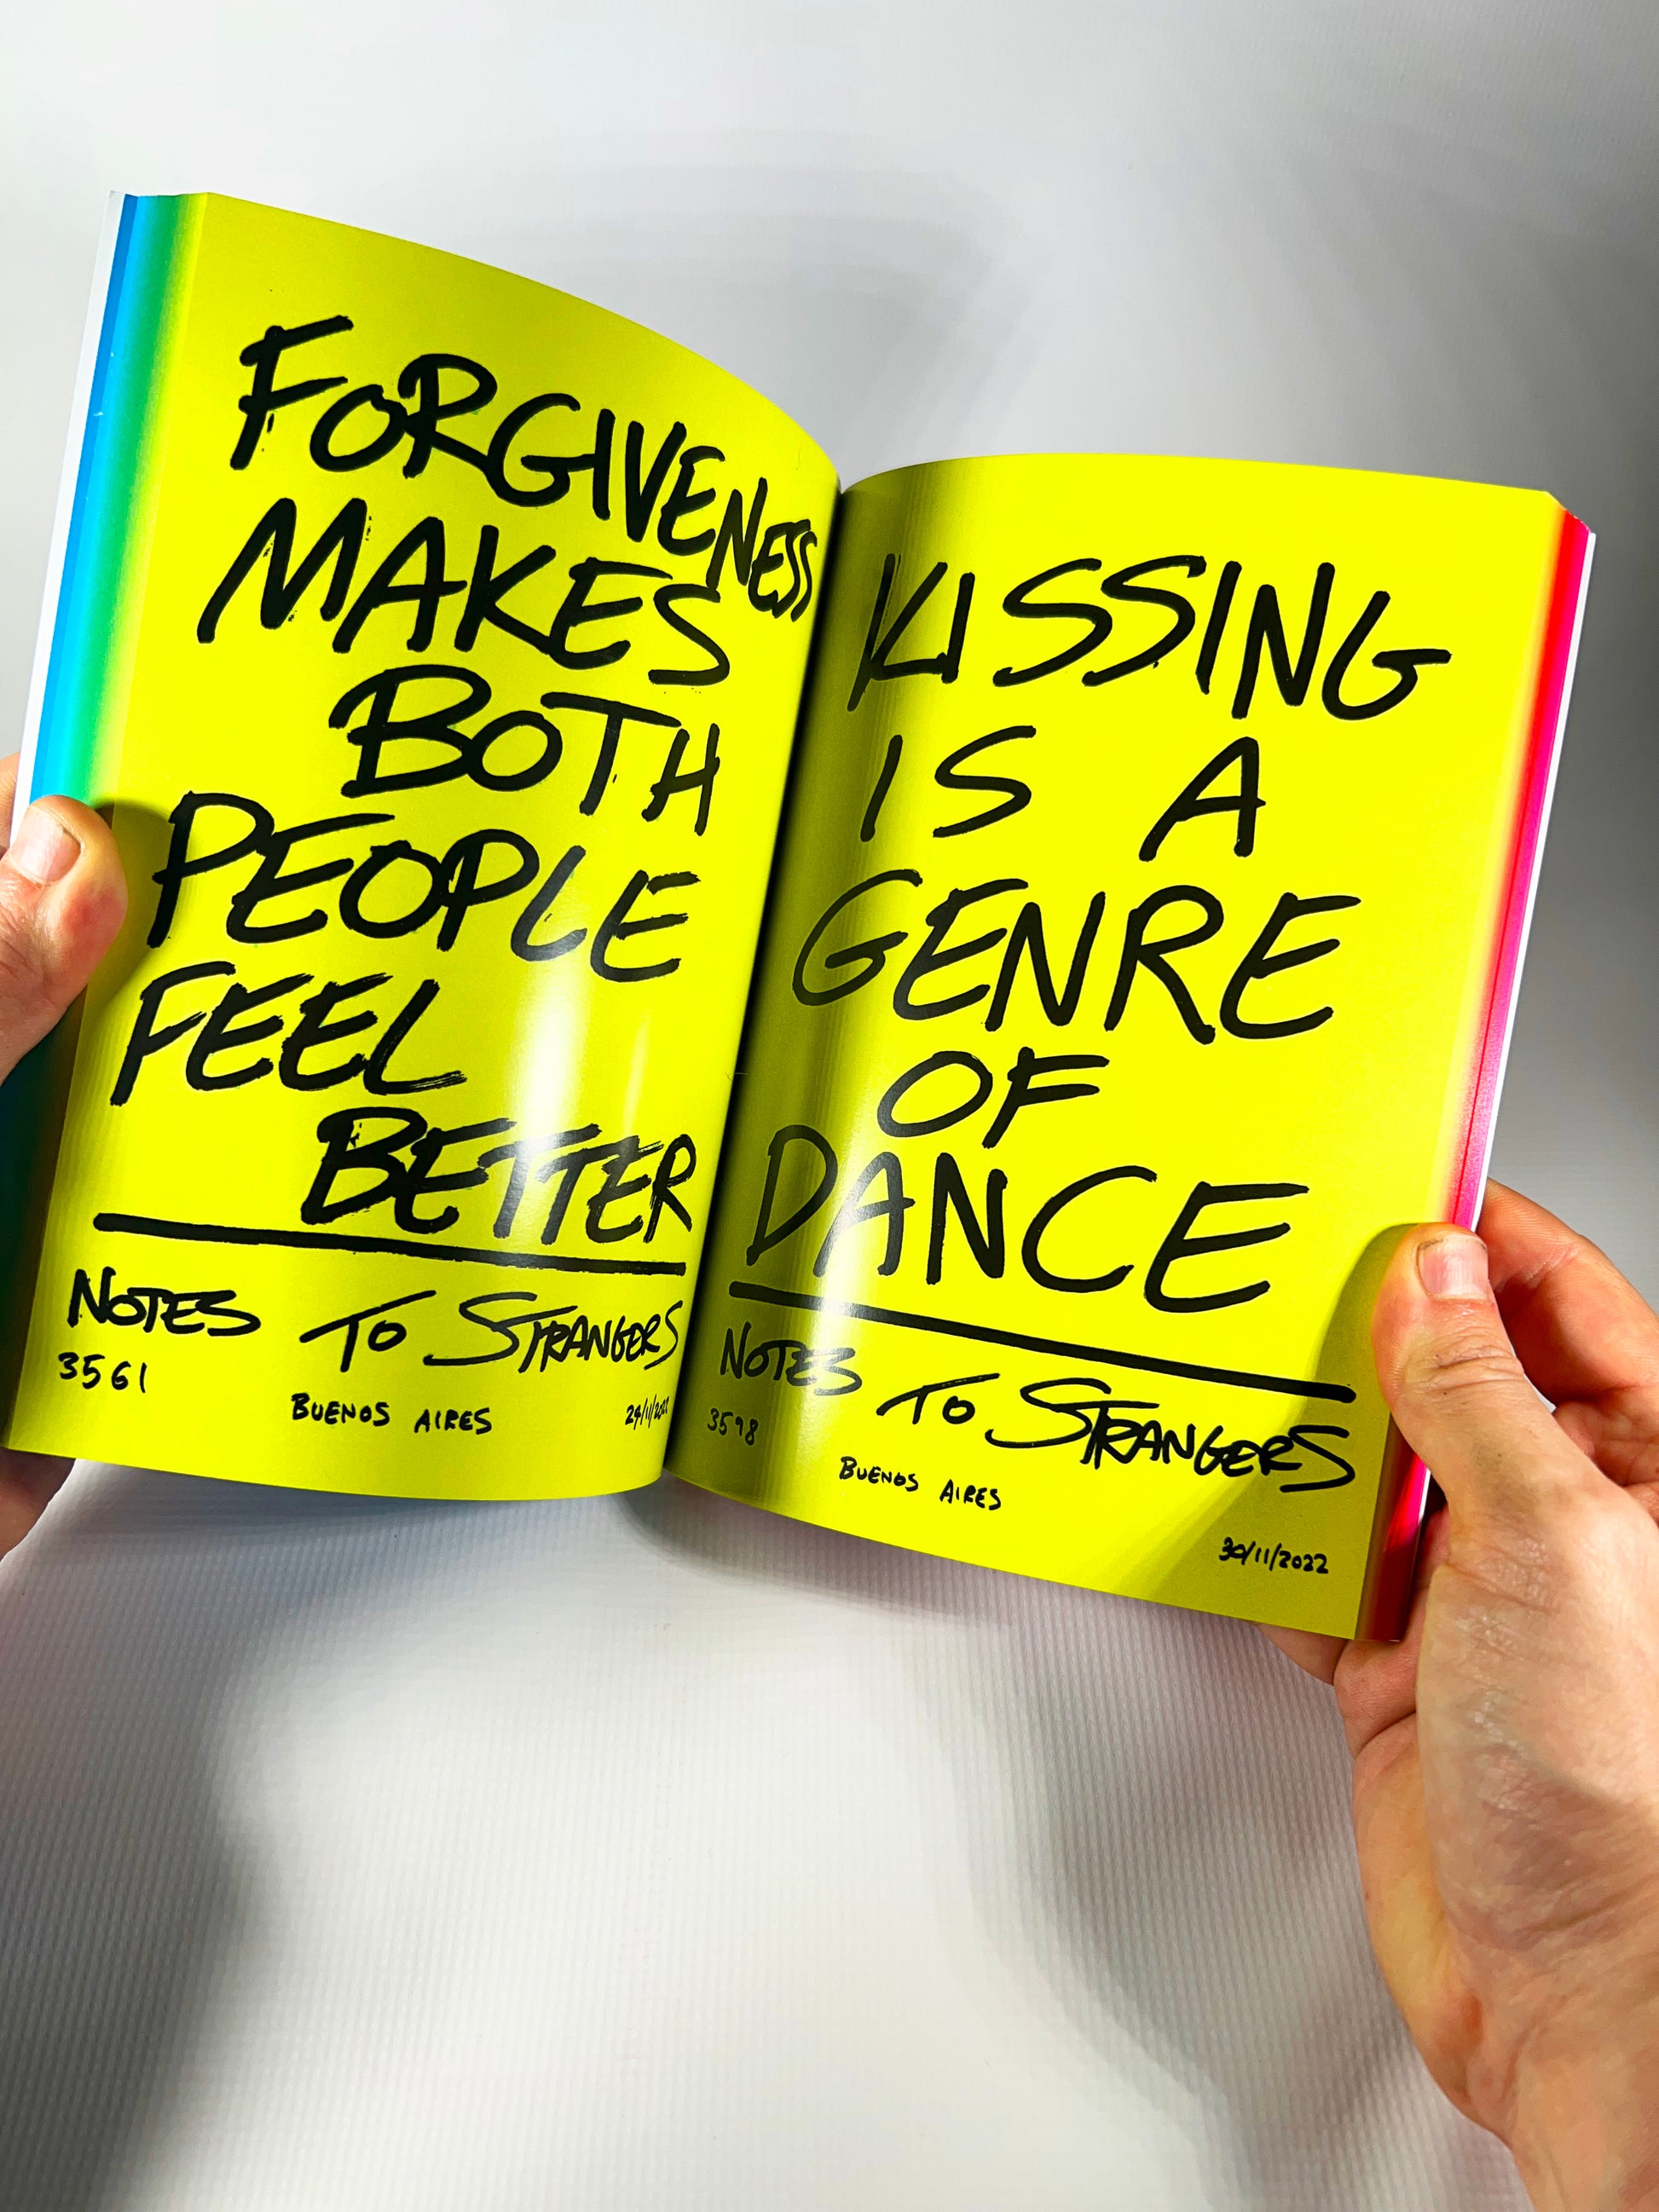 FORGIVENESS
MAKES
BOTH
PEOPLE
FEEL
BETTER
NOTES TO STRANGERS
3561
BUENOS AIRES
KISSING
IS A
GENRE
OF
DANCE
NOTES TO STRANGERS
3598
BUENOS AIRES
30/11/2022